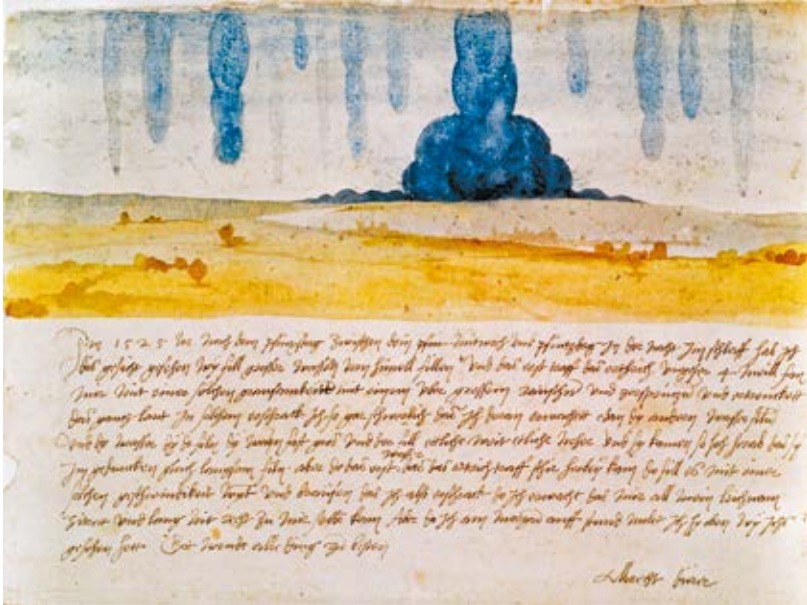 Im 1525 Jor nach dem pfinxstag zwischen dem mitwoch und pfintzdag in der nacht im schlaff hab ich
dis gesicht gesehen wy fill grosser wassern vom himell fillen Und das erst traff das erthrich ungefer 4 meill fan
mir mit einer solchen grausamkeitt mit einem uber grossem raüschn und zersprützen und ertrenckett
das gannz lant In solchem erschrack ich so gar schwerlich das ich doran erwachett edan dy andern wasser filn
Und dy wasser dy do filn dy warn fast gros und der fill etliche weit etliche neher und sy kamen so hoch herab das sy
im gedancken gleich langsam filn aber do das erst wasser das das ertrich traff schir herbey kam do fill es mit einer
solchen geschwindikeitt wynt und braüsen das ich also erschrack do ich erwacht das mir all mein leichnam
zitrett und lang nit recht zu mir selbs kam Aber do ich am morgn auff stund molet ich hy oben wy ichs
gesehen hett Got wende alle ding zu besten
Albrecht dürer